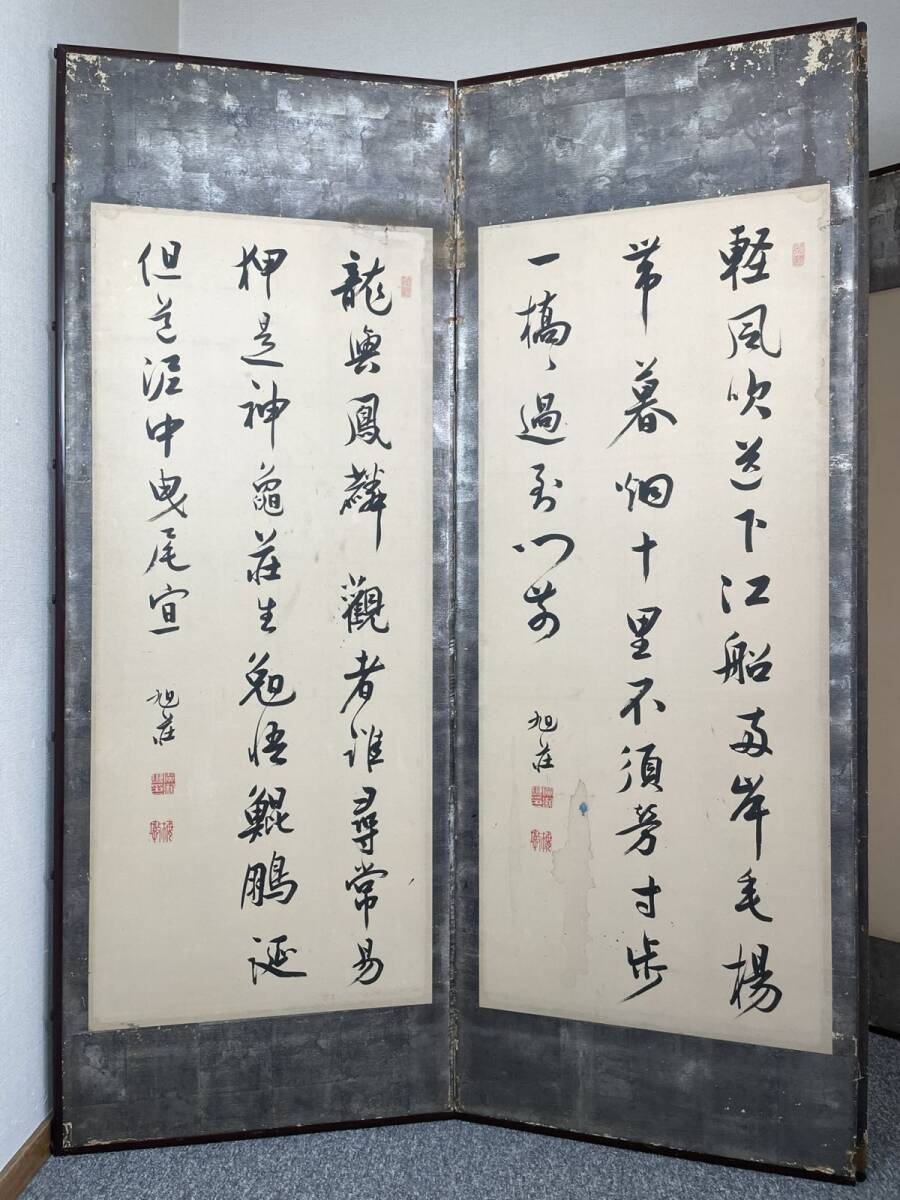 軽風吹送下江船両岸毛楊
帯暮烟十里不須労寸歩
一橋々過到門前
旭荘
龍與鳳麟觀者誰尋常易
狎是神龜荘生勉悟鯤鵬誕
但道泥中曳尾宜
旭荘